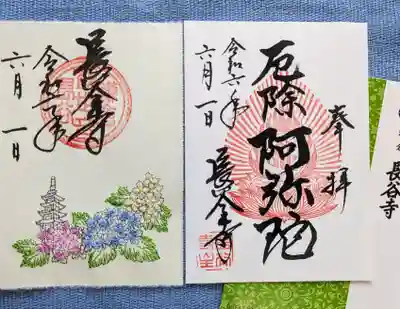 長谷寺
令和六年
六月一日
奉拝
厄除 阿弥陀
長谷寺
令和六年
六月一日
長谷寺